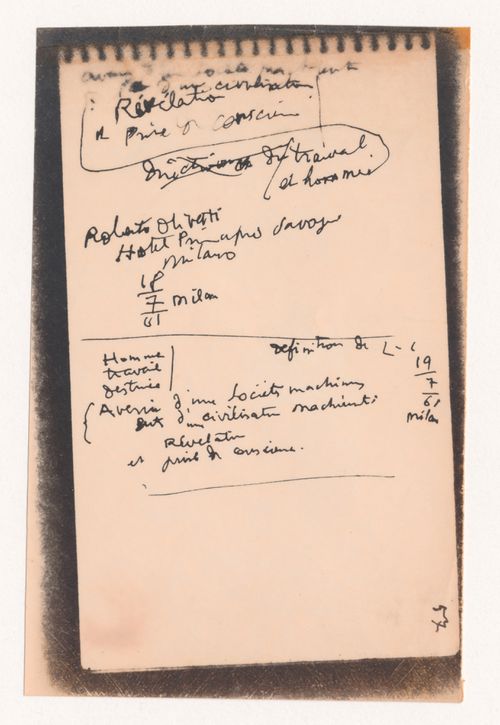 d'une civilisation
Révélation
et Prise de conscience
du travail
et homme
Roberto Olivetti
Hotel Principe Savoye
Milano
18
7 Milan
61
Homme
travail
définition de
19
7
61
Milan
Avenir d'une Société machiniste
d'une civilisation machiniste
Révélation
et prise de conscience.